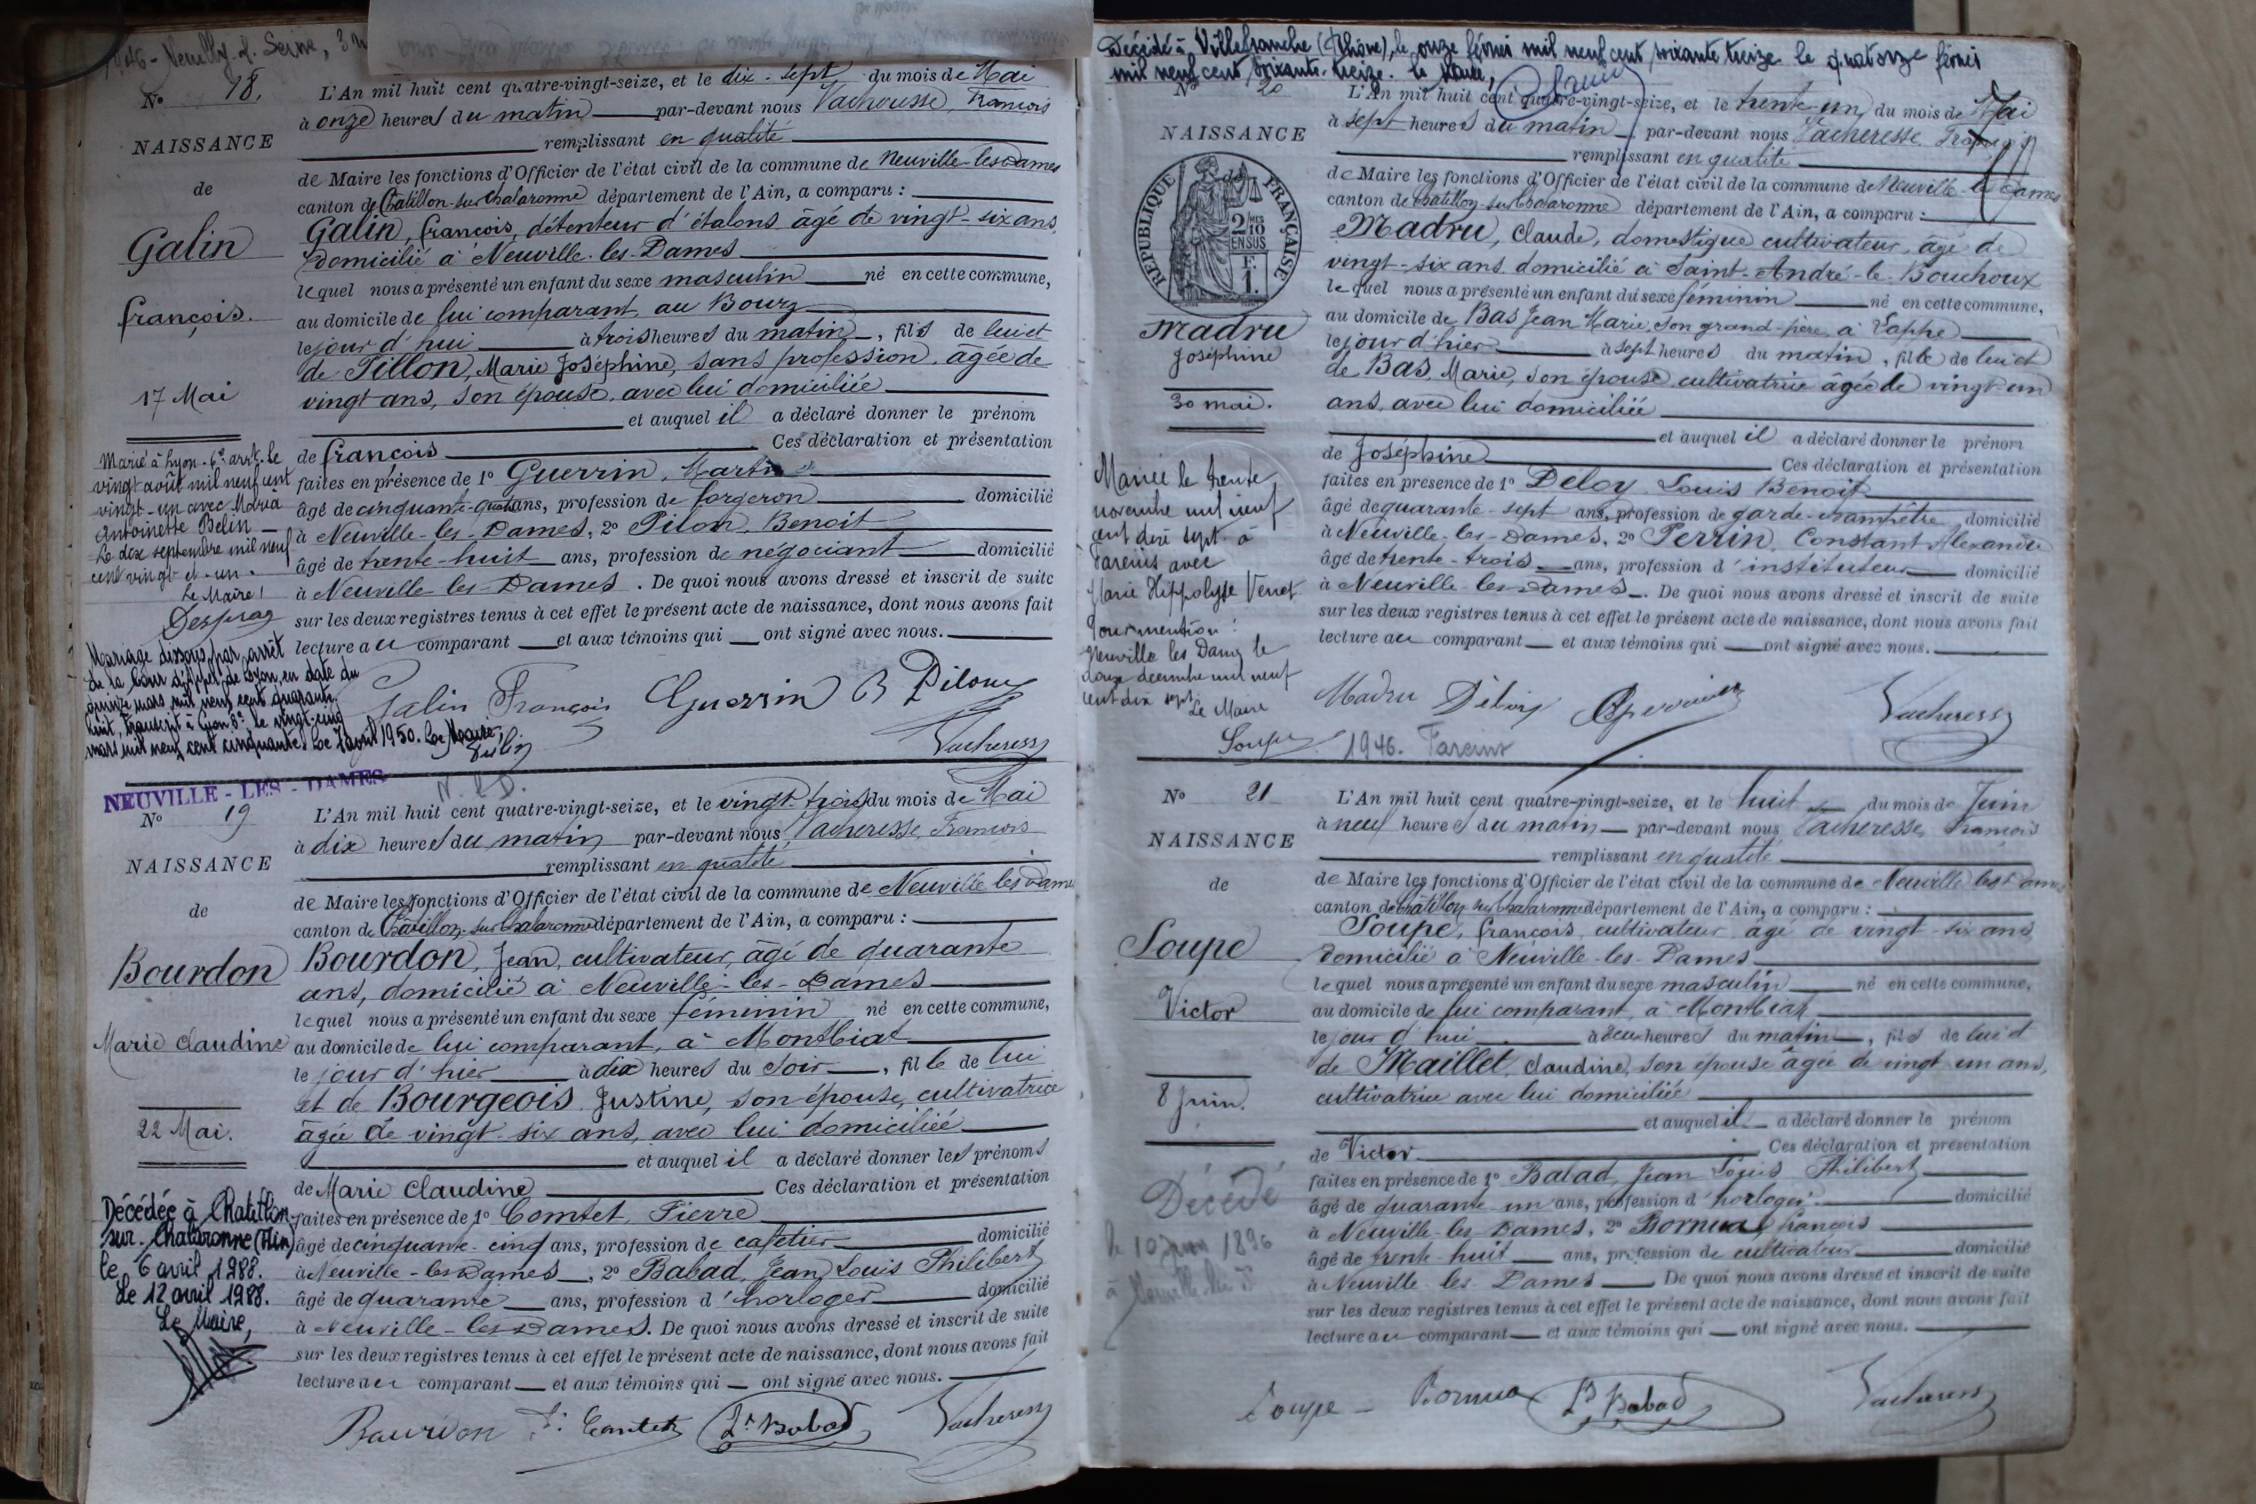 1946 - Neuilly s. Seine, 3
N° 18.
NAISSANCE
de
Galin
françois.
17 Mai
Marié à Lyon - 6e arrt. le
vingt août mil neuf cent
vingt-un avec Maria
Antoinette Belin
Le dix septembre mil neuf
cent vingt et un.
Le Maire
Mariage dissous par arrêt
de la Cour d'Appel de Lyon en date du
quinze mars mil neuf cent quarante
huit, transcrit à Lyon 8e le vingt-cinq
mars mil neuf cent cinquante. Le 7 avril 1950. Le Maire,
L'An mil huit cent quatre-vingt-seize, et le dix-sept du mois de Mai
à onze heures du matin par-devant nous Vacheresse, François
remplissant en qualité
de Maire les fonctions d'Officier de l'état civil de la commune de Neuville-les-Dames
canton de Châtillon-sur-Chalaronne département de l'Ain, a comparu :
Galin, françois, détenteur d'étalons âgé de vingt-six ans
domicilié à Neuville-les-Dames
lequel nous a présenté un enfant du sexe masculin né en cette commune,
au domicile de lui comparant au Bourg
le jour d'hui à trois heures du matin, fils de lui et
de Tillon, Marie Joséphine, sans profession, âgée de
vingt ans, son épouse, avec lui domiciliée
et auquel il a déclaré donner le prénom
de françois Ces déclaration et présentation
faites en présence de 1° Guerrin, Martin
âgé de cinquante-quatre ans, profession de forgeron domicilié
à Neuville-les-Dames, 2° Pilon, Benoit
âgé de trente-huit ans, profession de négociant domicilié
à Neuville-les-Dames. De quoi nous avons dressé et inscrit de suite
sur les deux registres tenus à cet effet le présent acte de naissance, dont nous avons fait
lecture au comparant et aux témoins qui ont signé avec nous.
Galin François Guerrin B Pilon
Vacheresse
NEUVILLE - LES - DAMES
N. L. D.
N° 19
NAISSANCE
de
Bourdon
Marie Claudine
22 Mai.
Décédée à Chatillon-
sur-Chalaronne (Ain)
le 6 avril 1988.
Le 12 avril 1988.
Le Maire,
L'An mil huit cent quatre-vingt-seize, et le vingt-trois du mois de Mai
à dix heures du matin par-devant nous Vacheresse, François
remplissant en qualité
de Maire les fonctions d'Officier de l'état civil de la commune de Neuville les Dames
canton de Châtillon-sur-Chalaronne département de l'Ain, a comparu :
Bourdon, Jean, cultivateur, âgé de quarante
ans, domicilié à Neuville-les-Dames
lequel nous a présenté un enfant du sexe féminin né en cette commune,
au domicile de lui comparant, à Montbiat
le jour d'hier à dix heures du soir, fille de lui
et de Bourgeois Justine, son épouse, cultivatrice
âgée de vingt-six ans, avec lui domiciliée
et auquel il a déclaré donner les prénoms
de Marie Claudine Ces déclaration et présentation
faites en présence de 1° Comtet, Pierre
âgé de cinquante-cinq ans, profession de cafetier domicilié
à Neuville-les-Dames, 2° Babad, Jean Louis Philibert
âgé de quarante ans, profession d'horloger domicilié
à Neuville-les-Dames. De quoi nous avons dressé et inscrit de suite
sur les deux registres tenus à cet effet le présent acte de naissance, dont nous avons fait
lecture au comparant et aux témoins qui ont signé avec nous.
Bourdon P. Comtet Ph Babad Vacheresse
Décédé à Villefranche (Rhône), le onze février mil neuf cent soixante treize le quatorze février
mil neuf cent soixante-treize. Le Maire,
N° 20
NAISSANCE
de
RÉPUBLIQUE FRANÇAISE
2/10 EN SUS
F. 1.
Madru
Joséphine
30 mai.
Mariée le trente
novembre mil neuf
cent dix sept à
Fareins avec
Marie Hippolyte Verret
Pour mention :
Neuville les Dames le
douze décembre mil neuf
cent dix sept
Le Maire
Soupe
L'An mil huit cent quatre-vingt-seize, et le trente-un du mois de Mai
à sept heures du matin par-devant nous Vacheresse, François
remplissant en qualité
de Maire les fonctions d'Officier de l'état civil de la commune de Neuville-les-Dames
canton de Chatillon-sur-Chalaronne département de l'Ain, a comparu :
Madru, Claude, domestique cultivateur, âgé de
vingt-six ans domicilié à Saint-André-le-Bouchoux
lequel nous a présenté un enfant du sexe féminin né en cette commune,
au domicile de Bas Jean Marie, son grand-père, à Lappe
le jour d'hier à sept heures du matin, fille de lui et
de Bas, Marie, son épouse, cultivatrice âgée de vingt-un
ans, avec lui domiciliée
et auquel il a déclaré donner le prénom
de Joséphine Ces déclaration et présentation
faites en présence de 1° Déloy Louis Benoit
âgé de quarante-sept ans, profession de garde-champêtre domicilié
à Neuville-les-Dames, 2° Perrin, Constant Alexandre
âgé de trente-trois ans, profession d'instituteur domicilié
à Neuville-les-Dames. De quoi nous avons dressé et inscrit de suite
sur les deux registres tenus à cet effet le présent acte de naissance, dont nous avons fait
lecture au comparant et aux témoins qui ont signé avec nous.
Madru Déloy Vacheresse
1946. Fareins
N° 21
NAISSANCE
de
Soupe
Victor
8 Juin.
Décédé
le 10 juin 1896
à Neuville les D
L'An mil huit cent quatre-vingt-seize, et le huit du mois de Juin
à neuf heures du matin par-devant nous Vacheresse, François
remplissant en qualité
de Maire les fonctions d'Officier de l'état civil de la commune de Neuville les Dames
canton de Châtillon sur Chalaronne département de l'Ain, a comparu :
Soupe, françois, cultivateur âgé de vingt-six ans
domicilié à Neuville-les-Dames
lequel nous a présenté un enfant du sexe masculin né en cette commune,
au domicile de lui comparant, à Montbiat
le jour d'hui à deux heures du matin, fils de lui et
de Maillet, Claudine, son épouse âgée de vingt un ans,
cultivatrice avec lui domiciliée
et auquel il a déclaré donner le prénom
de Victor Ces déclaration et présentation
faites en présence de 1° Babad, Jean Louis Philibert
âgé de quarante un ans, profession d'horloger domicilié
à Neuville-les-Dames, 2° Bornua, françois
âgé de trente-huit ans, profession de cultivateur domicilié
à Neuville-les-Dames De quoi nous avons dressé et inscrit de suite
sur les deux registres tenus à cet effet le présent acte de naissance, dont nous avons fait
lecture au comparant et aux témoins qui ont signé avec nous.
Soupe Bornua Ph Babad Vacheresse